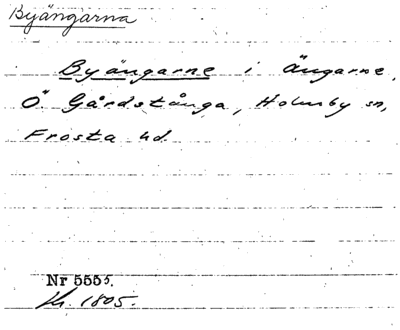 Byängarna
Byängarne i Ängarne,
Ö. Gårdstånga, Holmby sn,
Frosta hd.
Nr 5555.
1805.